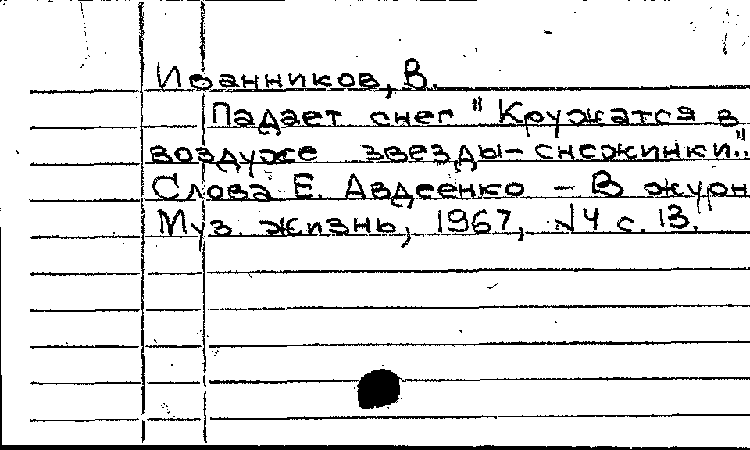 Иванников, В.
Падает снег "Кружатся в
воздухе звезды-снежинки".
Слова Е. Авдеенко - В журн
Муз. жизнь, 1967, №4 с. 13.